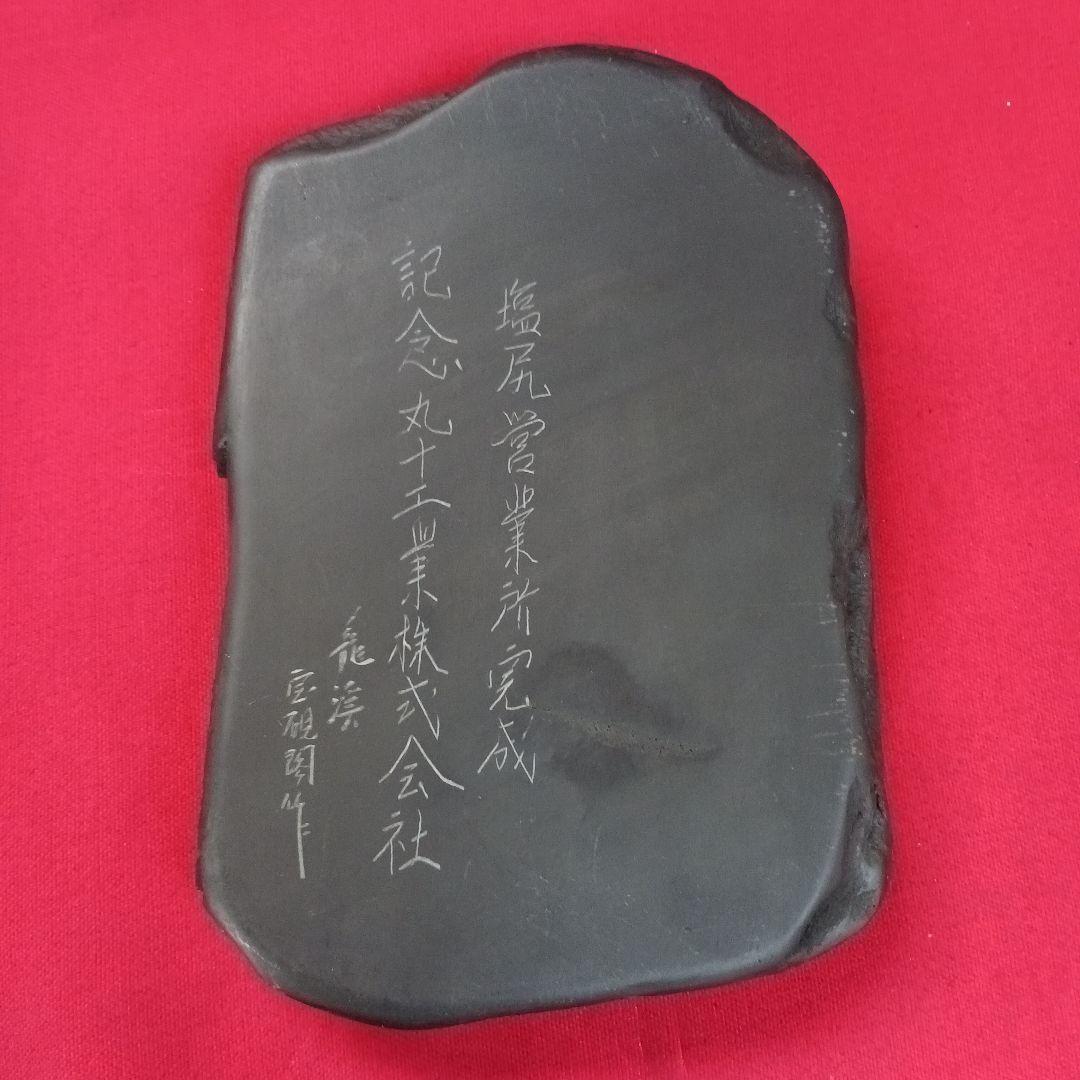 塩尻営業所完成
記念丸十工業株式会社
龍渓
宝硯閣作